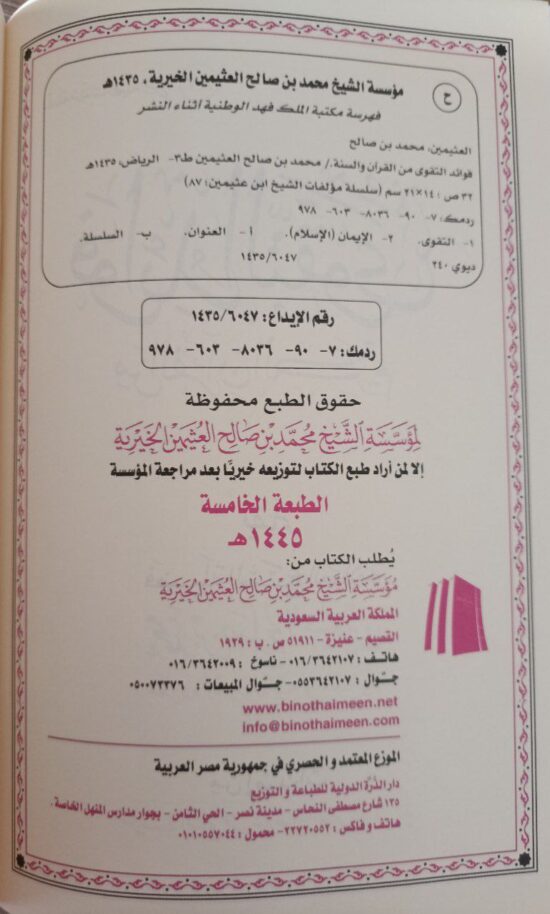 ح
مؤسسة الشيخ محمد بن صالح العثيمين الخيرية، ١٤٣٥هـ
فهرسة مكتبة الملك فهد الوطنية أثناء النشر
العثيمين، محمد بن صالح
فوائد التقوى من القرآن والسنة./ محمد بن صالح العثيمين ط٣- الرياض، ١٤٣٥هـ
٣٢ ص؛ ١٤×٢١ سم (سلسلة مؤلفات الشيخ ابن عثيمين؛ ٨٧)
ردمك: ٧- ٩٠- ٨٠٣٦- ٦٠٣- ٩٧٨
١- التقوى. ٢- الإيمان (الإسلام). أ- العنوان. ب- السلسلة.
ديوي ٢٤٠ ١٤٣٥/٦٠٤٧
رقم الإيداع: ١٤٣٥/٦٠٤٧
ردمك: ٧- ٩٠- ٨٠٣٦- ٦٠٣- ٩٧٨
حقوق الطبع محفوظة
لمؤسسة الشيخ محمد بن صالح العثيمين الخيرية
إلا لمن أراد طبع الكتاب لتوزيعه خيريًا بعد مراجعة المؤسسة
الطبعة الخامسة
١٤٤٥هـ
يُطلب الكتاب من:
مؤسسة الشيخ محمد بن صالح العثيمين الخيرية
المملكة العربية السعودية
القصيم - عنيزة - ٥١٩١١ ص. ب: ١٩٢٩
هاتف: ٠١٦/٣٦٤٢١٠٧ - ناسوخ: ٠١٦/٣٦٤٢٠٠٩
جوال: ٠٥٥٣٦٤٢١٠٧ - جوال المبيعات: ٠٥٠٠٧٣٣٧٦
www.binothaimeen.net
info@binothaimeen.com
الموزع المعتمد و الحصري في جمهورية مصر العربية
دار الدُّرَّة الدولية للطباعة و التوزيع
١٢٥ شارع مصطفى النحاس - مدينة نصر - الحي الثامن - بجوار مدارس المنهل الخاصة.
هاتف و فاكس: ٢٢٧٢٠٥٥٢ - محمول: ٠١٠١٠٥٥٧٠٤٤